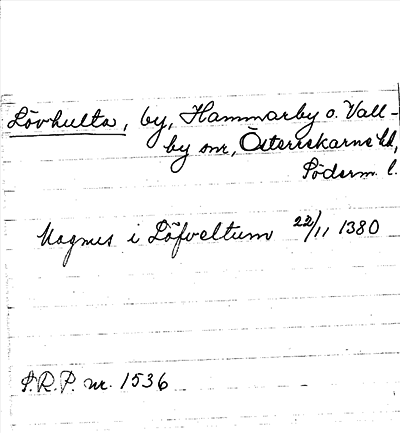 Lövhulta, by, Hammarby o. Vall-
by snr, Österrekarne hd,
Söderm. l.
Magnus i Löfveltum 22/11 1380
S.R.P. nr. 1536